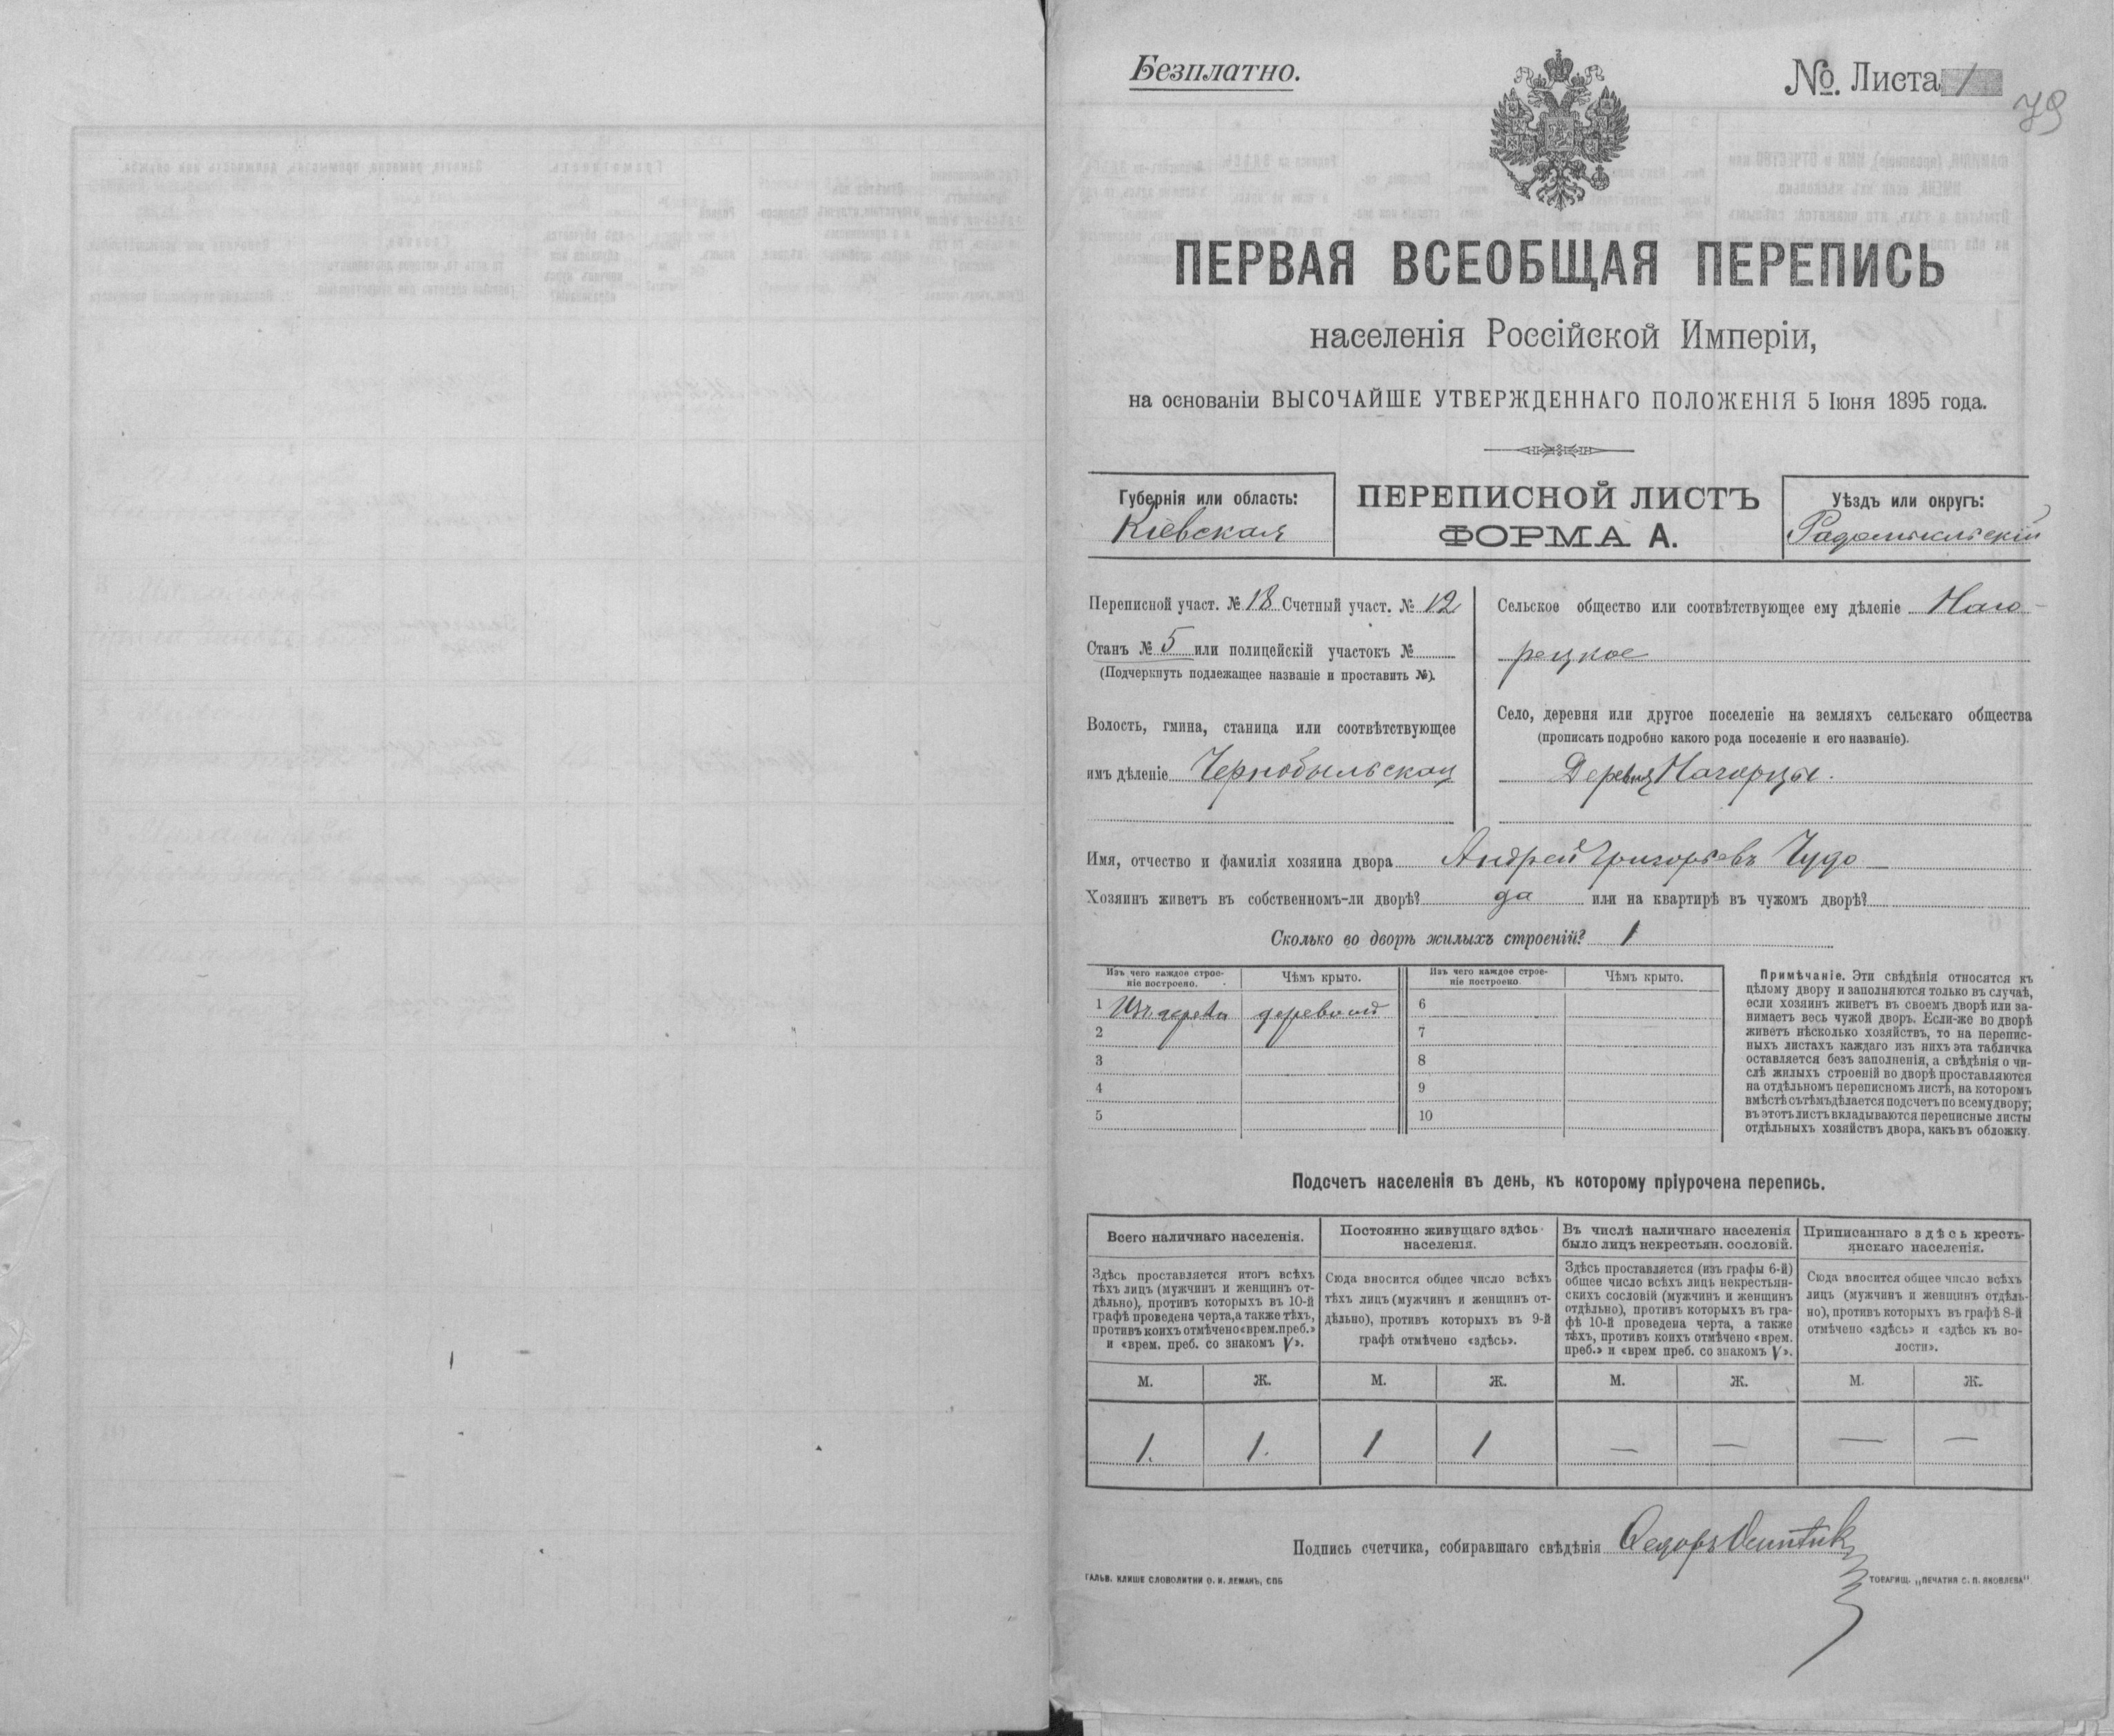 Безплатно.
№. Листа 1
79
ПЕРВАЯ ВСЕОБЩАЯ ПЕРЕПИСЬ
населенія Россійской Имперіи,
на основаніи ВЫСОЧАЙШЕ УТВЕРЖДЕННАГО ПОЛОЖЕНІЯ 5 Іюня 1895 года.
Губернія или область:
Кіевская
ПЕРЕПИСНОЙ ЛИСТЪ
ФОРМА А.
Уѣздъ или округъ:
Радомысльскій
Переписной участ. № 18 Счетный участ. № 12
Станъ № 5 или полицейскій участокъ №
(Подчеркнуть подлежащее названіе и проставить №).
Волость, гмина, станица или соотвѣтствующее
имъ дѣленіе Чернобыльская
Сельское общество или соотвѣтствующее ему дѣленіе Наго-
рецкое
Село, деревня или другое поселеніе на земляхъ сельскаго общества
(прописать подробно какого рода поселеніе и его названіе).
Деревня Нагорцы.
Имя, отчество и фамилія хозяина двора Андрей Григорьевъ Чудо
Хозяинъ живетъ въ собственномъ-ли дворѣ? да или на квартирѣ въ чужомъ дворѣ?
Сколько во дворѣ жилыхъ строеній? 1
Изъ чего каждое строе-
ніе построено.
Чѣмъ крыто.
Изъ чего каждое строе-
ніе построено
Чѣмъ крыто.
1 Изъ дерева деревомъ 6
2 7
3 8
4 9
5 10
Примѣчаніе. Эти свѣдѣнія относятся къ
цѣлому двору и заполняются только въ случаѣ,
если хозяинъ живетъ въ своемъ дворѣ или за-
нимаетъ весь чужой дворъ. Если-же во дворѣ
живетъ нѣсколько хозяйствъ, то на перепис-
ныхъ листахъ каждаго изъ нихъ эта табличка
оставляется безъ заполненія, а свѣдѣнія о чи-
слѣ жилыхъ строеній во дворѣ проставляются
на отдѣльномъ переписномъ листѣ, на которомъ
вмѣстѣ сътѣмъ дѣлается подсчетъ по всему двору;
въ этотъ листъ вкладываются переписные листы
отдѣльныхъ хозяйствъ двора, какъ въ обложку.
Подсчетъ населенія въ день, къ которому пріурочена перепись.
Всего наличнаго населенія.
Здѣсь проставляется итогъ всѣхъ
тѣхъ лицъ (мужчинъ и женщинъ от-
дѣльно), противъ которыхъ въ 10-й
графѣ проведена черта, а также тѣхъ,
противъ коихъ отмѣчено «врем. преб.»
и «врем. преб. со знакомъ V».
Постоянно живущаго здѣсь
населенія.
Сюда вносится общее число всѣхъ
тѣхъ лицъ (мужчинъ и женщинъ от-
дѣльно), противъ которыхъ въ 9-й
графѣ отмѣчено «здѣсь».
Въ числѣ наличнаго населенія
было лицъ некрестьян. сословій.
Здѣсь проставляется (изъ графы 6-й)
общее число всѣхъ лицъ некрестьян-
скихъ сословій (мужчинъ и женщинъ
отдѣльно), противъ которыхъ въ гра-
фѣ 10-й проведена черта, а также
тѣхъ, противъ коихъ отмѣчено «врем.
преб.» и «врем преб. со знакомъ V».
Приписаннаго здѣсь кресть-
янскаго населенія.
Сюда вносится общее число всѣхъ
лицъ (мужчинъ и женщинъ отдѣль-
но), противъ которыхъ въ графѣ 8-й
отмѣчено «здѣсь» и «здѣсь къ во-
лости».
М. Ж. М. Ж. М. Ж. М. Ж.
1. 1. 1 1 — — — —
Подпись счетчика, собиравшаго свѣдѣнія Федоръ
ГАЛЬВ. КЛИШЕ СЛОВОЛИТНИ О. И. ЛЕМАНЪ, СПБ
ТОВАРИЩ. „ПЕЧАТНЯ С. П. ЯКОВЛЕВА"